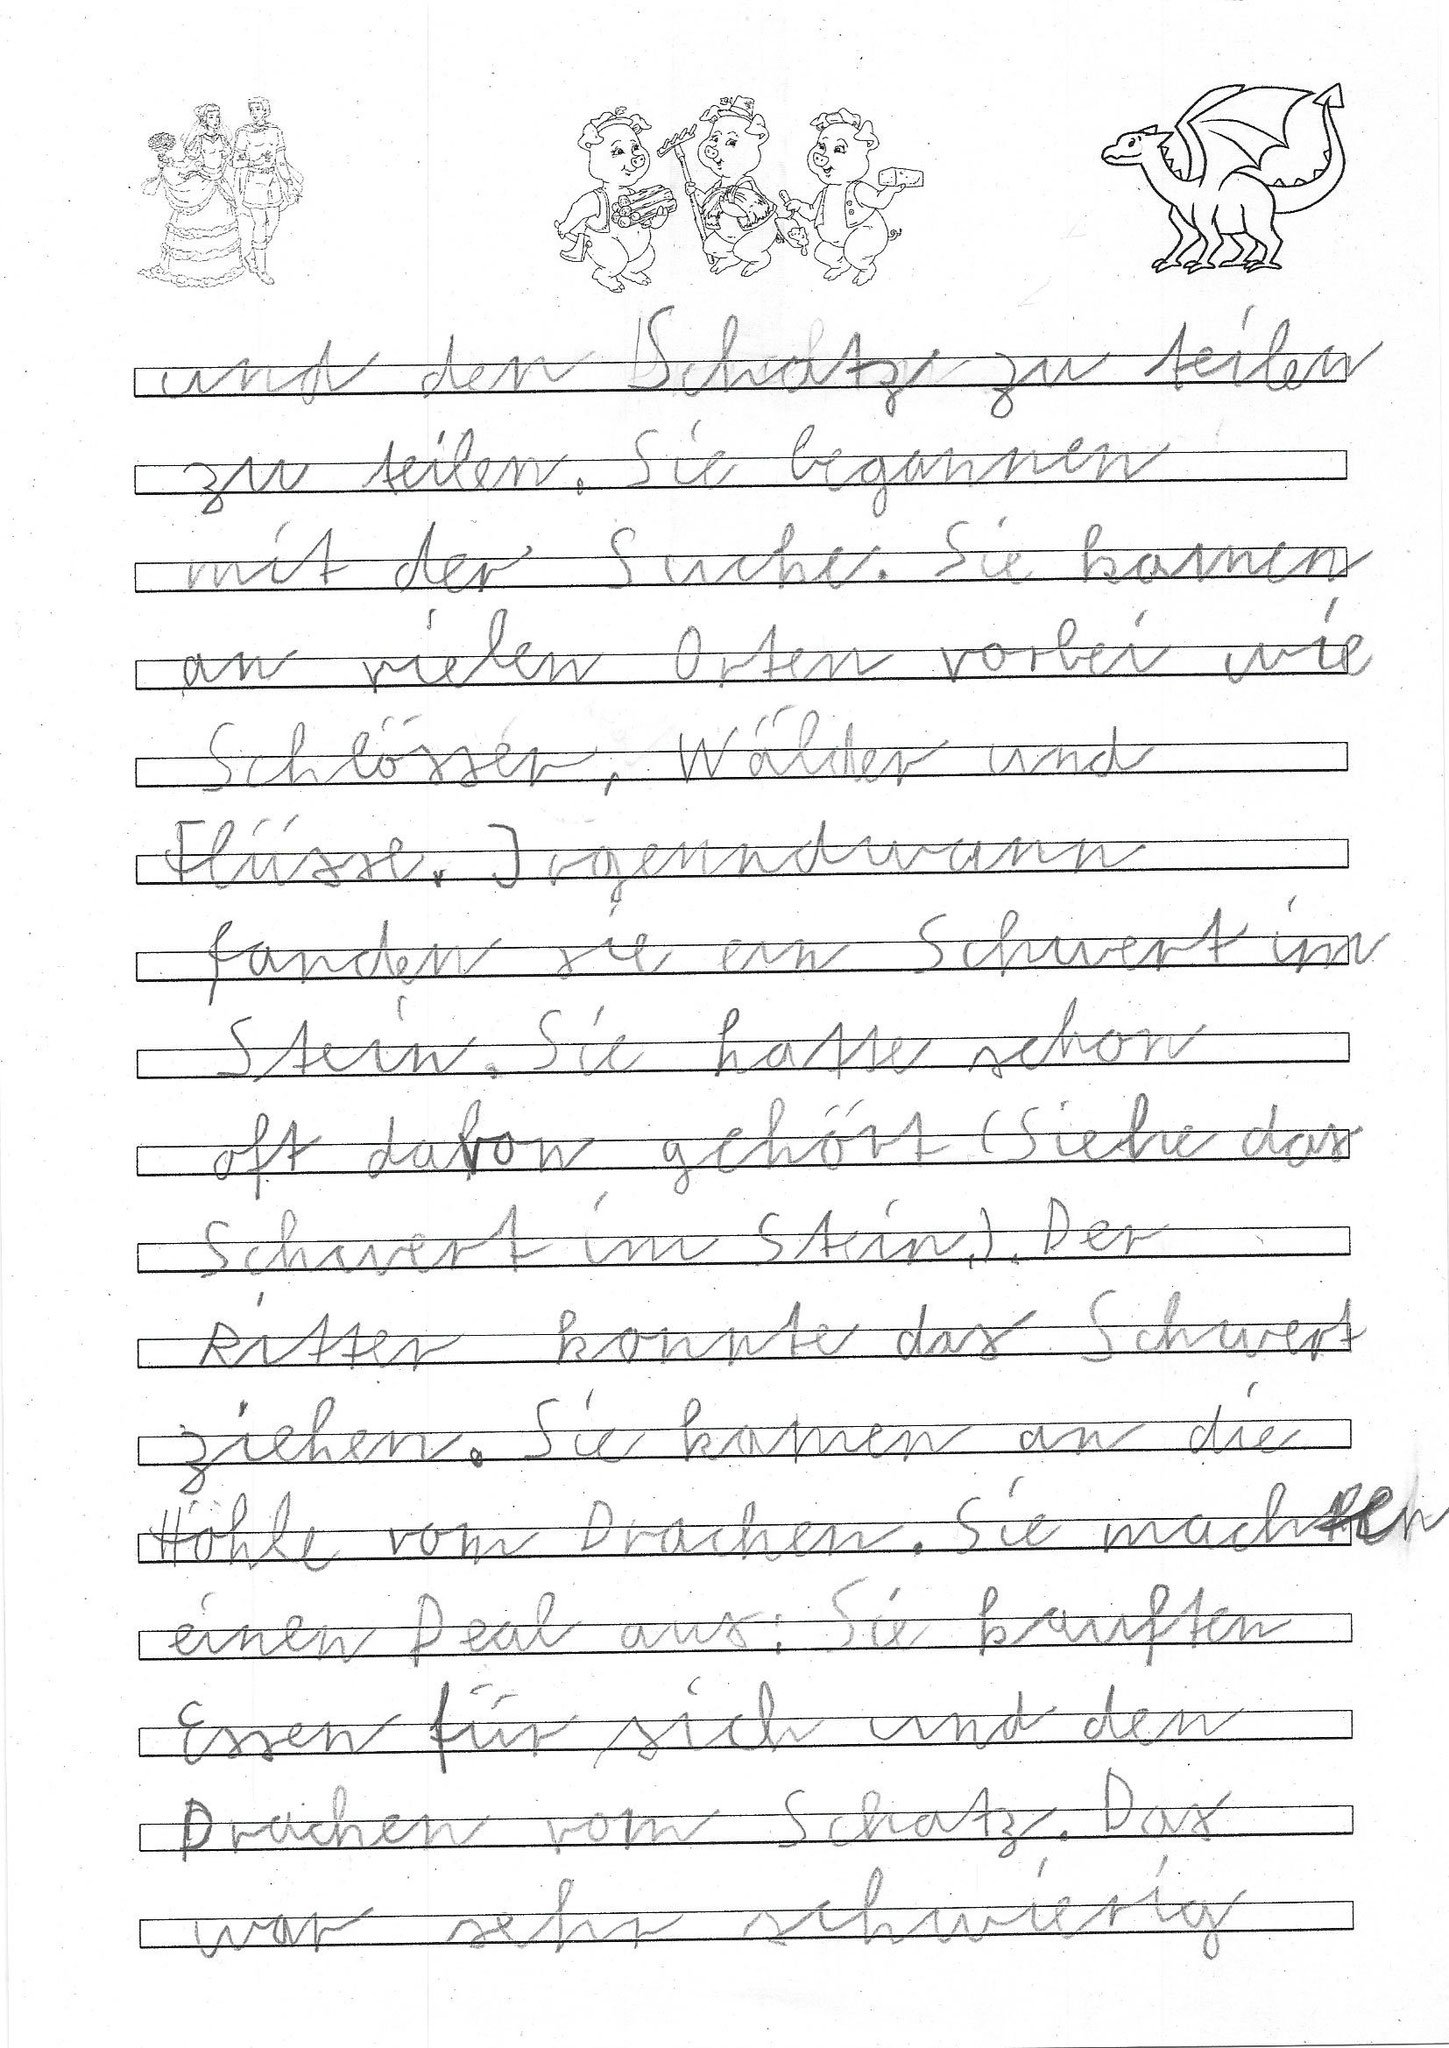 und den Schatz zu teilen
zu teilen. Sie begannen
mit der Suche. Sie kamen
an vielen Orten vorbei wie
Schlösser, Wälder und
Flüsse. Irgenndwann
fanden sie ein Schwert im
Stein. Sie hatte schon
oft davon gehört (Siehe das
Schwert im Stein,). Der
Ritter konnte das Schwert
ziehen. Sie kamen an die
Höhle vom Drachen. Sie machten
einen Deal aus: Sie kauften
Essen für sich und den
Drachen vom Schatz. Das
war sehr schwierig